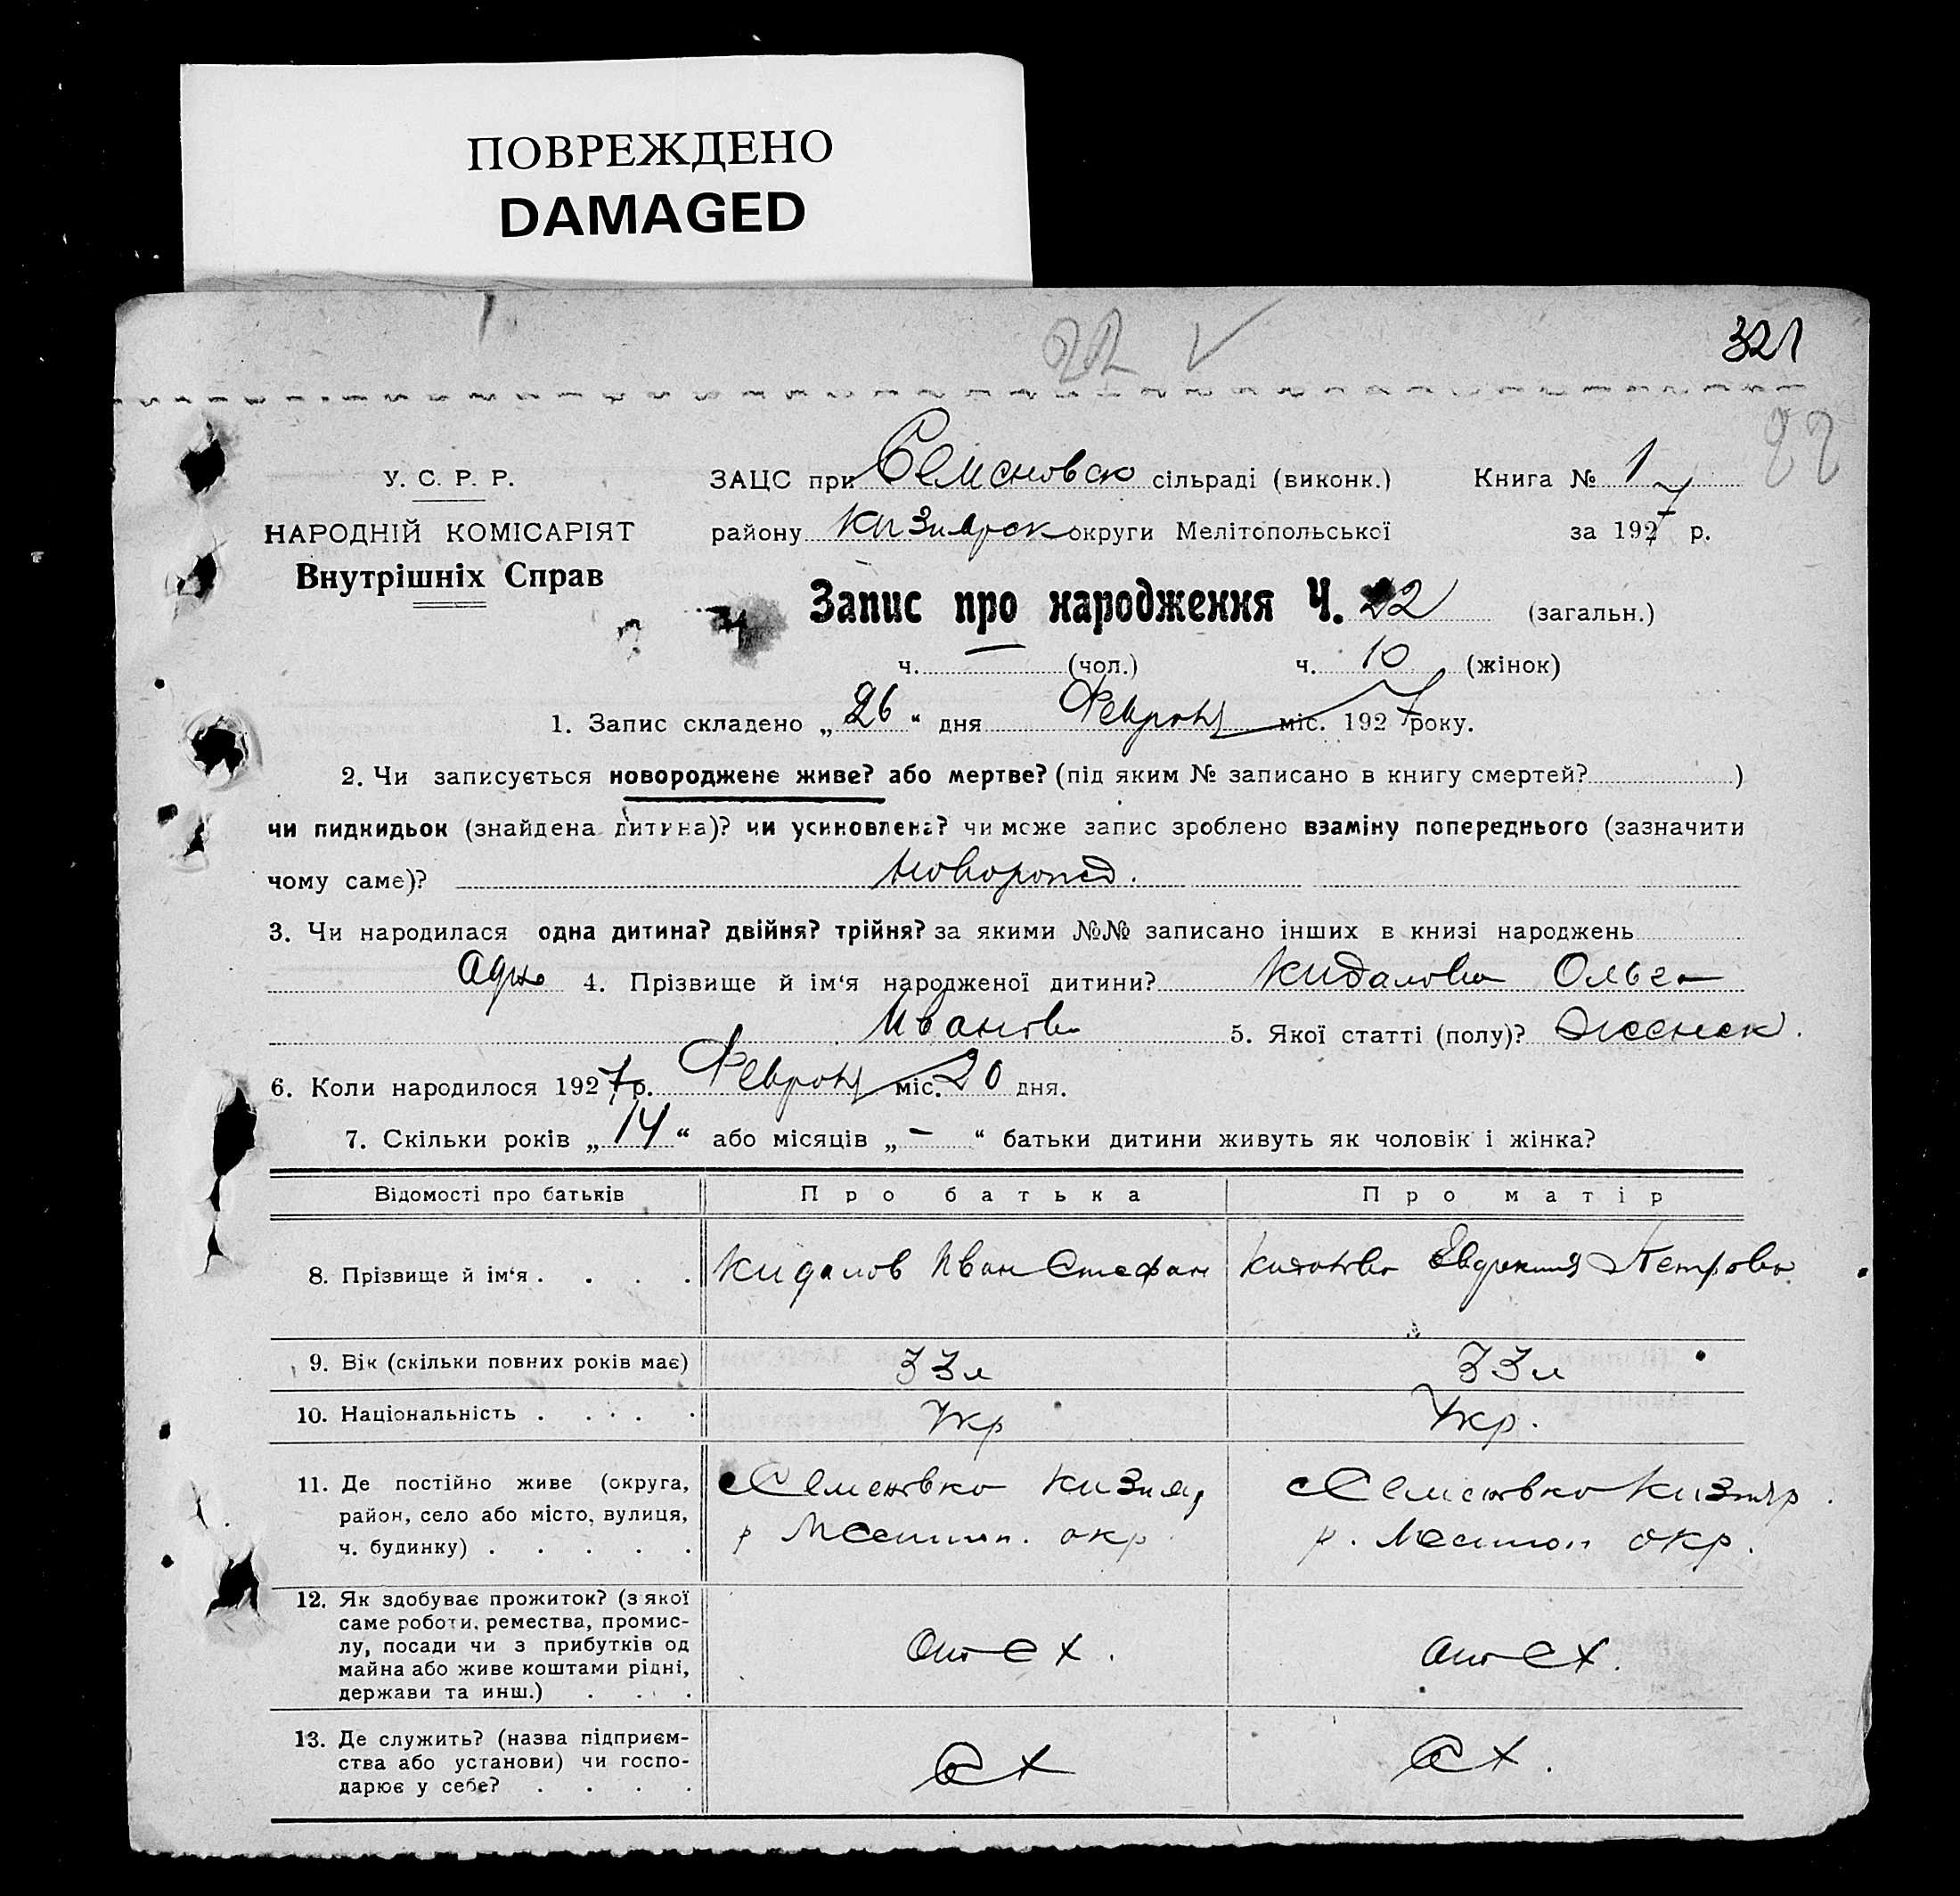 ПОВРЕЖДЕНО
DAMAGED
22
321
22
У. С. Р. Р.
ЗАЦС при Семеновск сільраді (виконк.) Книга № 1
НАРОДНІЙ КОМІСАРІЯТ
району Кизиярск округи Мелітопольської за 1927 р.
Внутрішніх Справ
Запис про народження Ч. 22 (загальн.)
ч. — (чол.) ч. 10 (жінок)
1. Запис складено „26“ дня Февраля міс. 1927 року.
2. Чи записується новороджене живе? або мертве? (під яким № записано в книгу смертей? )
чи пидкидьок (знайдена дитина)? чи усиновлена? чи може запис зроблено взаміну попереднього (зазначити
чому саме)? новорожд.
3. Чи народилася одна дитина? двійня? трійня? за якими №№ записано інших в книзі народжень
4. Прізвище й ім‘я народженої дитини? Кидалова Ольга
Иванов 5. Якої статті (полу)? женск.
6. Коли народилося 1927 р. Февраля міс. 20 дня.
7. Скільки років „14“ або місяців „–“ батьки дитини живуть як чоловік і жінка?
Відомості про батьків Про батька Про матір
8. Прізвище й ім‘я . . . . Кидалов Иван Стефан Евдокия Петровна
9. Вік (скільки повних років має) 33 л 33 л
10. Національність . . . . Укр Укр.
11. Де постійно живе (округа,
район, село або місто, вулиця,
ч. будинку) . . . . .
с Семеновка Кизияр
р Мелитоп. окр
с Семеновка Кизияр.
р. Мелитоп окр.
12. Як здобуває прожиток? (з якої
саме роботи, ремества, промис-
лу, посади чи з прибутків од
майна або живе коштами рідні,
держави та инш.) . . .
от с х.
от с х.
13. Де служить? (назва підприєм-
ства або установи) чи госпо-
дарює у себе? . . . .
с х
с х.